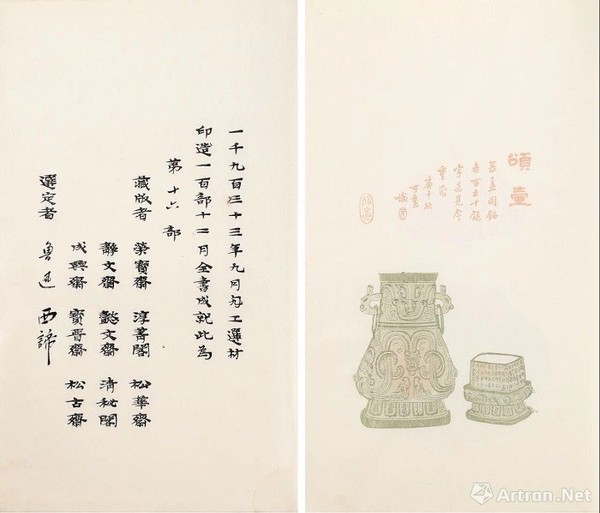 一千九百三十三年九月勼工選材
印造一百部十二月全書成就此為
第十六部
藏版者 榮寶齋 淳菁閣 松華齋
靜文齋 懿文齋 清秘閣
成興齋 寶晋齋 松古齋
選定者 魯迅 西諦
頌壺
Artron.Net